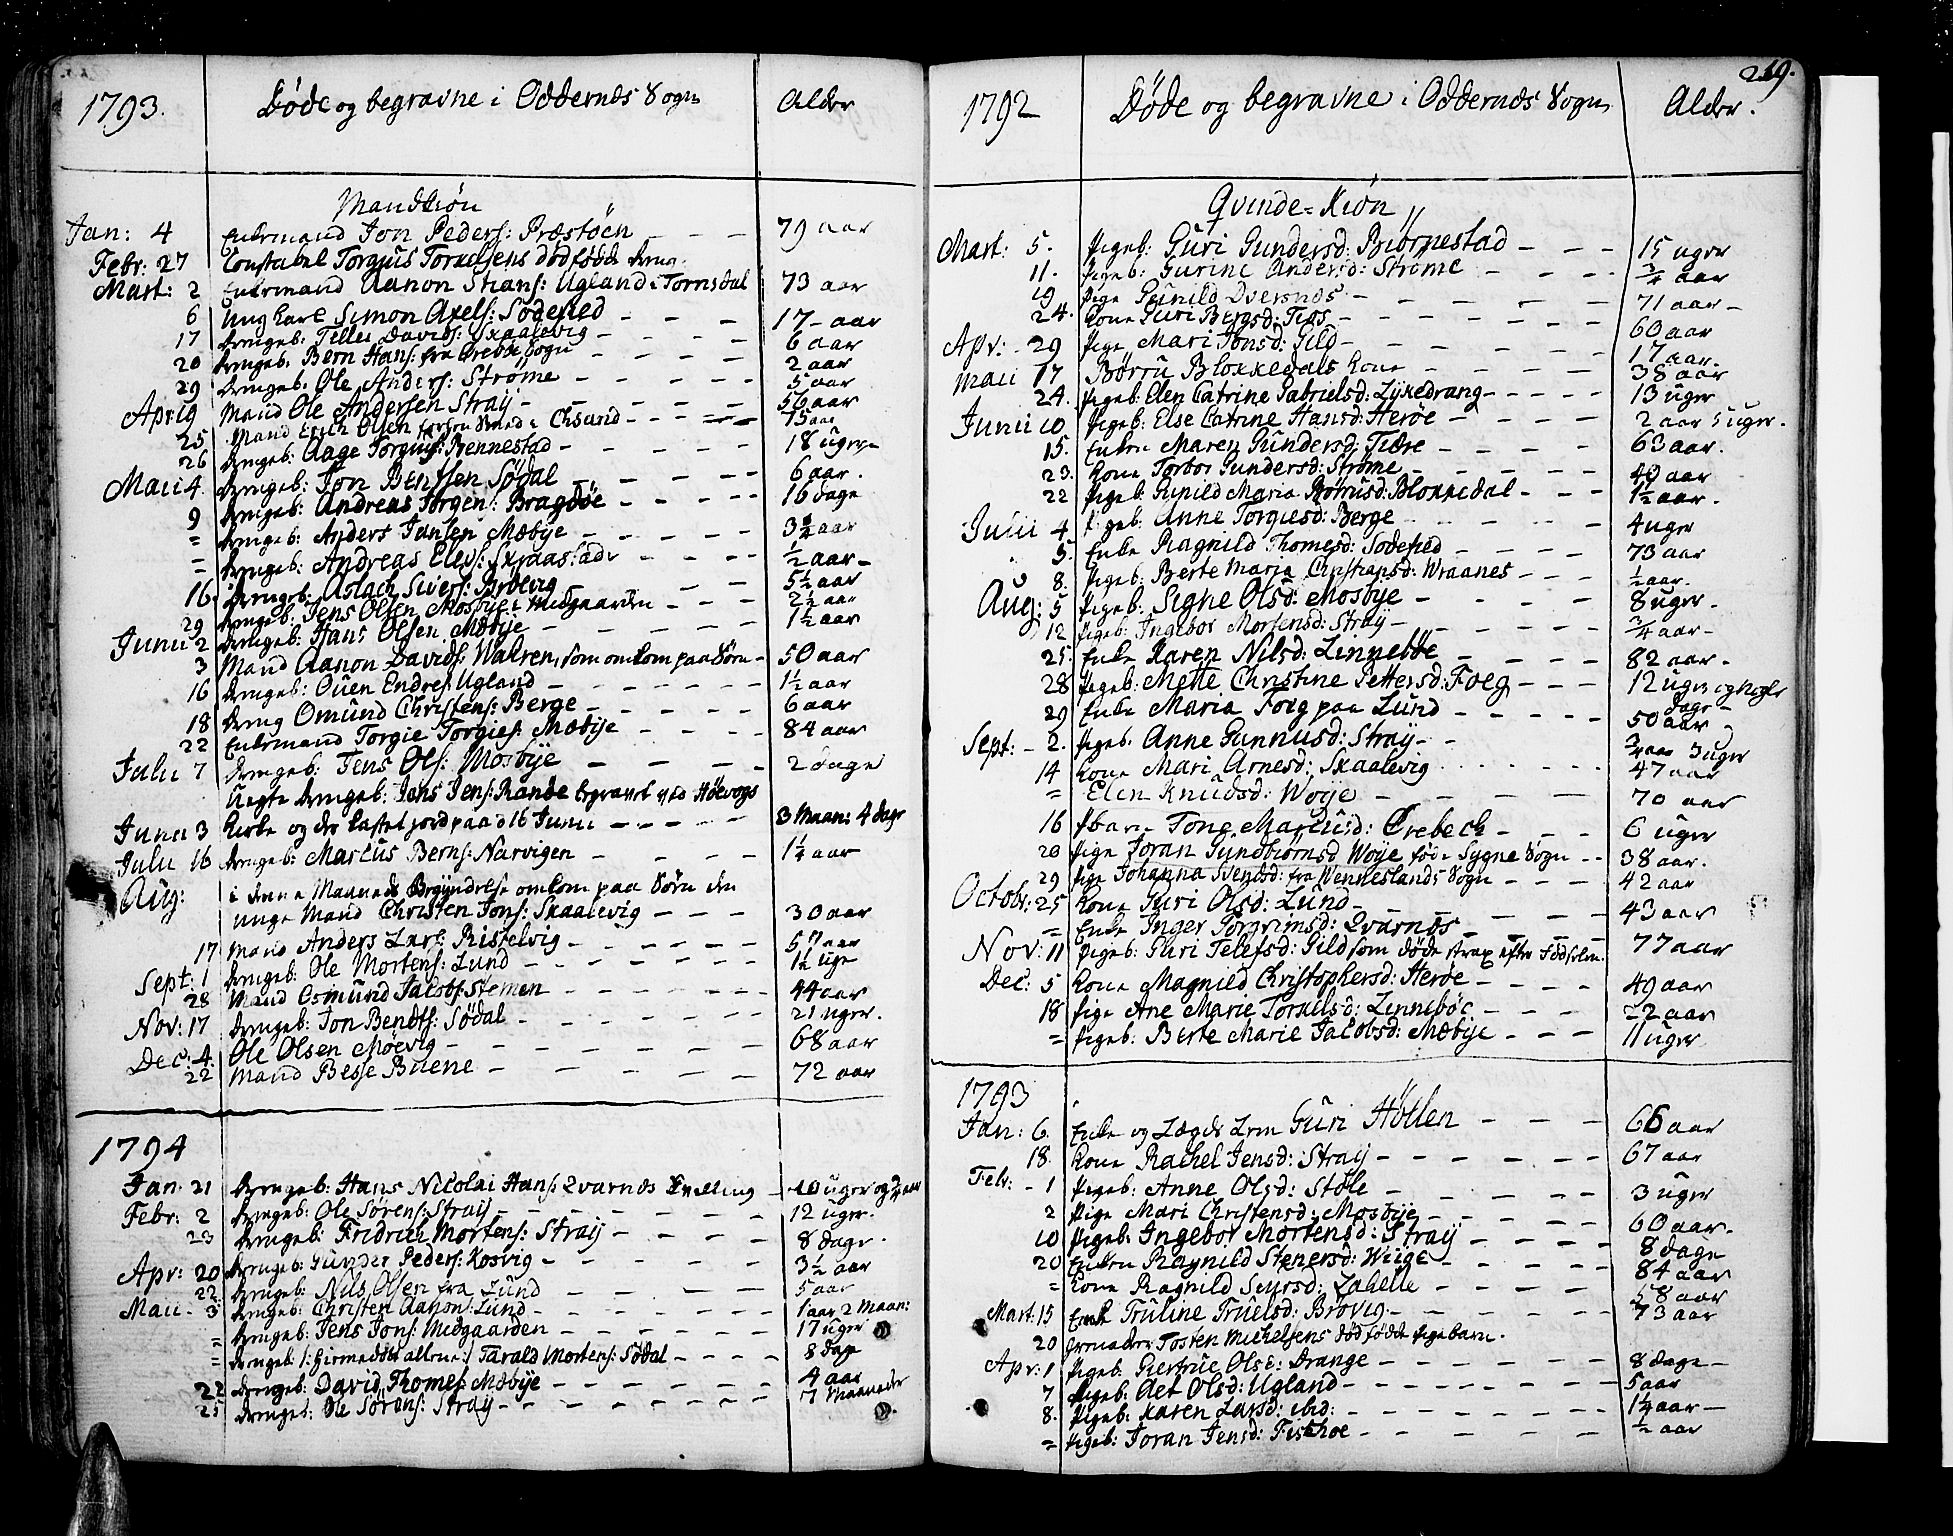 1793.
Døde og begravne i Oddernæs Sogn
Alder
Mandkiøn
Jan: 4 Enkemand Jon Peders: Præstøen 79 aar
Febr: 27 Constabel Torgius Torkelsens dødfødde dreng.
Mart: 2 Enkemand Aanon Stians: Ugland i Tornsdal 73 aar
6 Ung karl Simon Axels: Sødefied 17 aar
17 drengeb: Tellev Davids: Skaalevig 6 aar
20 drengeb: Bern Hans: fra Sogn 2 aar
29 drengeb: Ole Anders: Strøme 5 aar
Apr: 19 Mand Ole Andersen Stray 56 aar
25 Mand Erich Olsen 75 aar
26 drengeb: Aage Torgius: Bennestad 18 uger
Maii 4. drengeb: Jon Bentsen Sødal 6 aar.
9 drengeb: Andreas Jørgen: Bragdøe 16 dage
= drengeb: Anders Jansen Mæbye aar
= drengeb: Andreas Elevs: ½ aar
16. drengeb: Aslach Sivers: 5½ aar
29 drengeb: Jens Olsen Mosbye i Midgaarden 2½ aar
Junii 2 drengeb: Hans Olsen Mæbye 1½ aar
3 Mand Aanon Davids: Walren, som omkom paa Søen 50 aar
16 drengeb: Ouen Endres: Ugland 1½ aar
18 dreng Omund Christens: Berge 6 aar
22 Enkemand Torgie Torgies: Mæbye 84 aar
Julii 7 drengeb: Jens Ols: Mosbye 2 dage
Uægte drengeb: Jens Jens: Rande begravet ved Høevogs
Junii 3 kirke og der kastet jord paa d 16 Junii 3 Maan: 4 dage
Julii 16 drengeb: Marcus Berns: Narvigen 1¼ aar
Aug: i denne Maaneds Begyndelse omkom paa Søen den
unge Mand Christen Jons: Skaalevig 30 aar
17 Mand Anders Lars: Ristelvig aar
Sept: 1 drengeb: Ole Mortens: Lund 1½ uge
28 Mand Osmund Jacobs: Stemen 44 aar
Nov: 17 drengeb: Jon Bendts: Sødal 21 uger.
Dec: 4. Ole Olsen Moevig 68 aar
22 Mand Besse Buene 72 aar
1794
Jan. 21 drengeb: Hans Nicolai Hans: Qvarnæs 10 uger og
Febr: 2 drengeb: Ole Sørens: Stray 12 uger.
23 drengeb: Fridrich Mortens: Stray 8 dage.
Apr: 20 drengeb: Gunder Peders: Kosvig 3½ aar
22 drengeb: Nils Olsen fra Lund 5 aar
Maii 3 drengeb: Christen Aanon: Lund 1 aar 2 Maan:
= drengeb: Jens Jons: Midgaarden 17 uger
= drengeb: Tarald Mortens: Sødal 8 dage
22 drengeb: David Thomes: Mæbye 4 aar
25 drengeb: Ole Sørens: Stray 7 Maaneder
219.
1792
Døde og begravne i Oddernæs Sogn
Alder.
Qvinde-Kiøn
Mart: 5. Pigeb: Guri Gundersd: Biørnestad 15 uger
11. Pigeb: Gurine Andersd: Strøme ¾ aar
19 Pige Gunild Dversnæs 71 aar
24. kone Guri Bergsd: Tios 60 aar
Apr: 29 Pige Mari Jonsd: Gild 17 aar
Maii 17 Børru Blokkedals kone 38 aar
24. Pigeb: Elen Catrine Gabrielsd: Lykkedrang 13 uger
Junii 10 Pigeb: Else Catrine Hansd: Herøe 2 aar 5 uger.
15. Enken Maren Gundersd: 63 aar.
23. kone Torbor Gundersd: Strøme 40 aar
22 Pigeb: Gunild Maria Børrusd: Blokkedal 1½ aar.
Julii 4 Pigeb: Anne Torgiesd: Berge 4 uger
5. Enke Ragnild Thomesd: Sødefied 73 aar
8. Pigeb: Berte Maria Christiansd: Wraanes ½ aar.
Aug: 5 Pigeb: Signe Olsd: Mosbye 8 uger.
12 Pigeb: Ingebor Mortensd: Stray ¾ aar
25 Enke Karen Nilsd: Linnebøe 82 aar.
28 Pigeb: Mette Christine Pettersd: Foeg 12 uger og nogle
dage
29 Enke Maria Foeg paa Lund 50 aar
Sept: 2. Pigeb: Anne Gunnusd: Stray ¾ aar 3 uger
14 kone Mari Arnesd: Skaalevig 47 aar
= Elen Knudsd: Woye 70 aar
16 Pbarn Tone Marcusd: Ørebech 6 uger
20 Pige Joran Gundbiørnsd Woye født i Sygne Sogn 38 aar.
29 Pige Johanna Svendsd: fra Vennestlands Sogn 42 aar
Octobr: 25 kone Guri Olsd: Lund 43 aar
= Enke Inger Torgrimsd: Qvarnæs 77 aar
Nov: 11 Pigeb: Guri Telefsd: Gild som døde strax efter Fødselen.
Dec: 5 kone Magnild Christophersd: Herøe 49 aar
18 Pige Ane Marie Torkilsd: Linnebøe 22 aar
= Pigeb: Berte Marie Jacobsd: Mæbye 11 uger
1793
Jan: 6. Enke og Lægds Lem Guri Høllen 66 aar
18. kone Rachel Jensd: Stray 67 aar
Febr: 1 Pigeb: Anne Olsd: Støle 3 uger
2 Pige Mari Christensd: Mosbye 60 aar
10 Pigeb: Ingebor Mortensd: Stray 8 dage
20 Enken Ragnild Stenersd: Wiige 84 aar
= kone Ragnild Siursd: Lahelle 58 aar
Mart: 15 Enke Truline Truelsd: Brøvig 73 aar
20 Grenadeer Tosten Michelsens dødfødde Pigebarn.
Apr: 1 Pigeb: Giertrue Olsd: Drange 8 dage
7 Pigeb: Aet Olsd: Ugland 5 aar
8. Pigeb: Karen Larsd: ibid: 1¼ aar
= Pigeb: Joran Jensd: Fiskhoe ½ aar